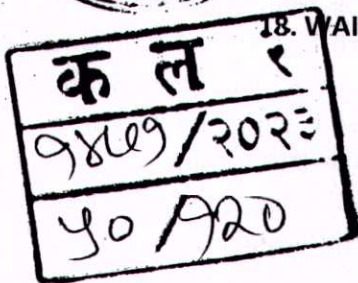 18. WAI
क ल १
१४७१/२०२३
५०/१२०